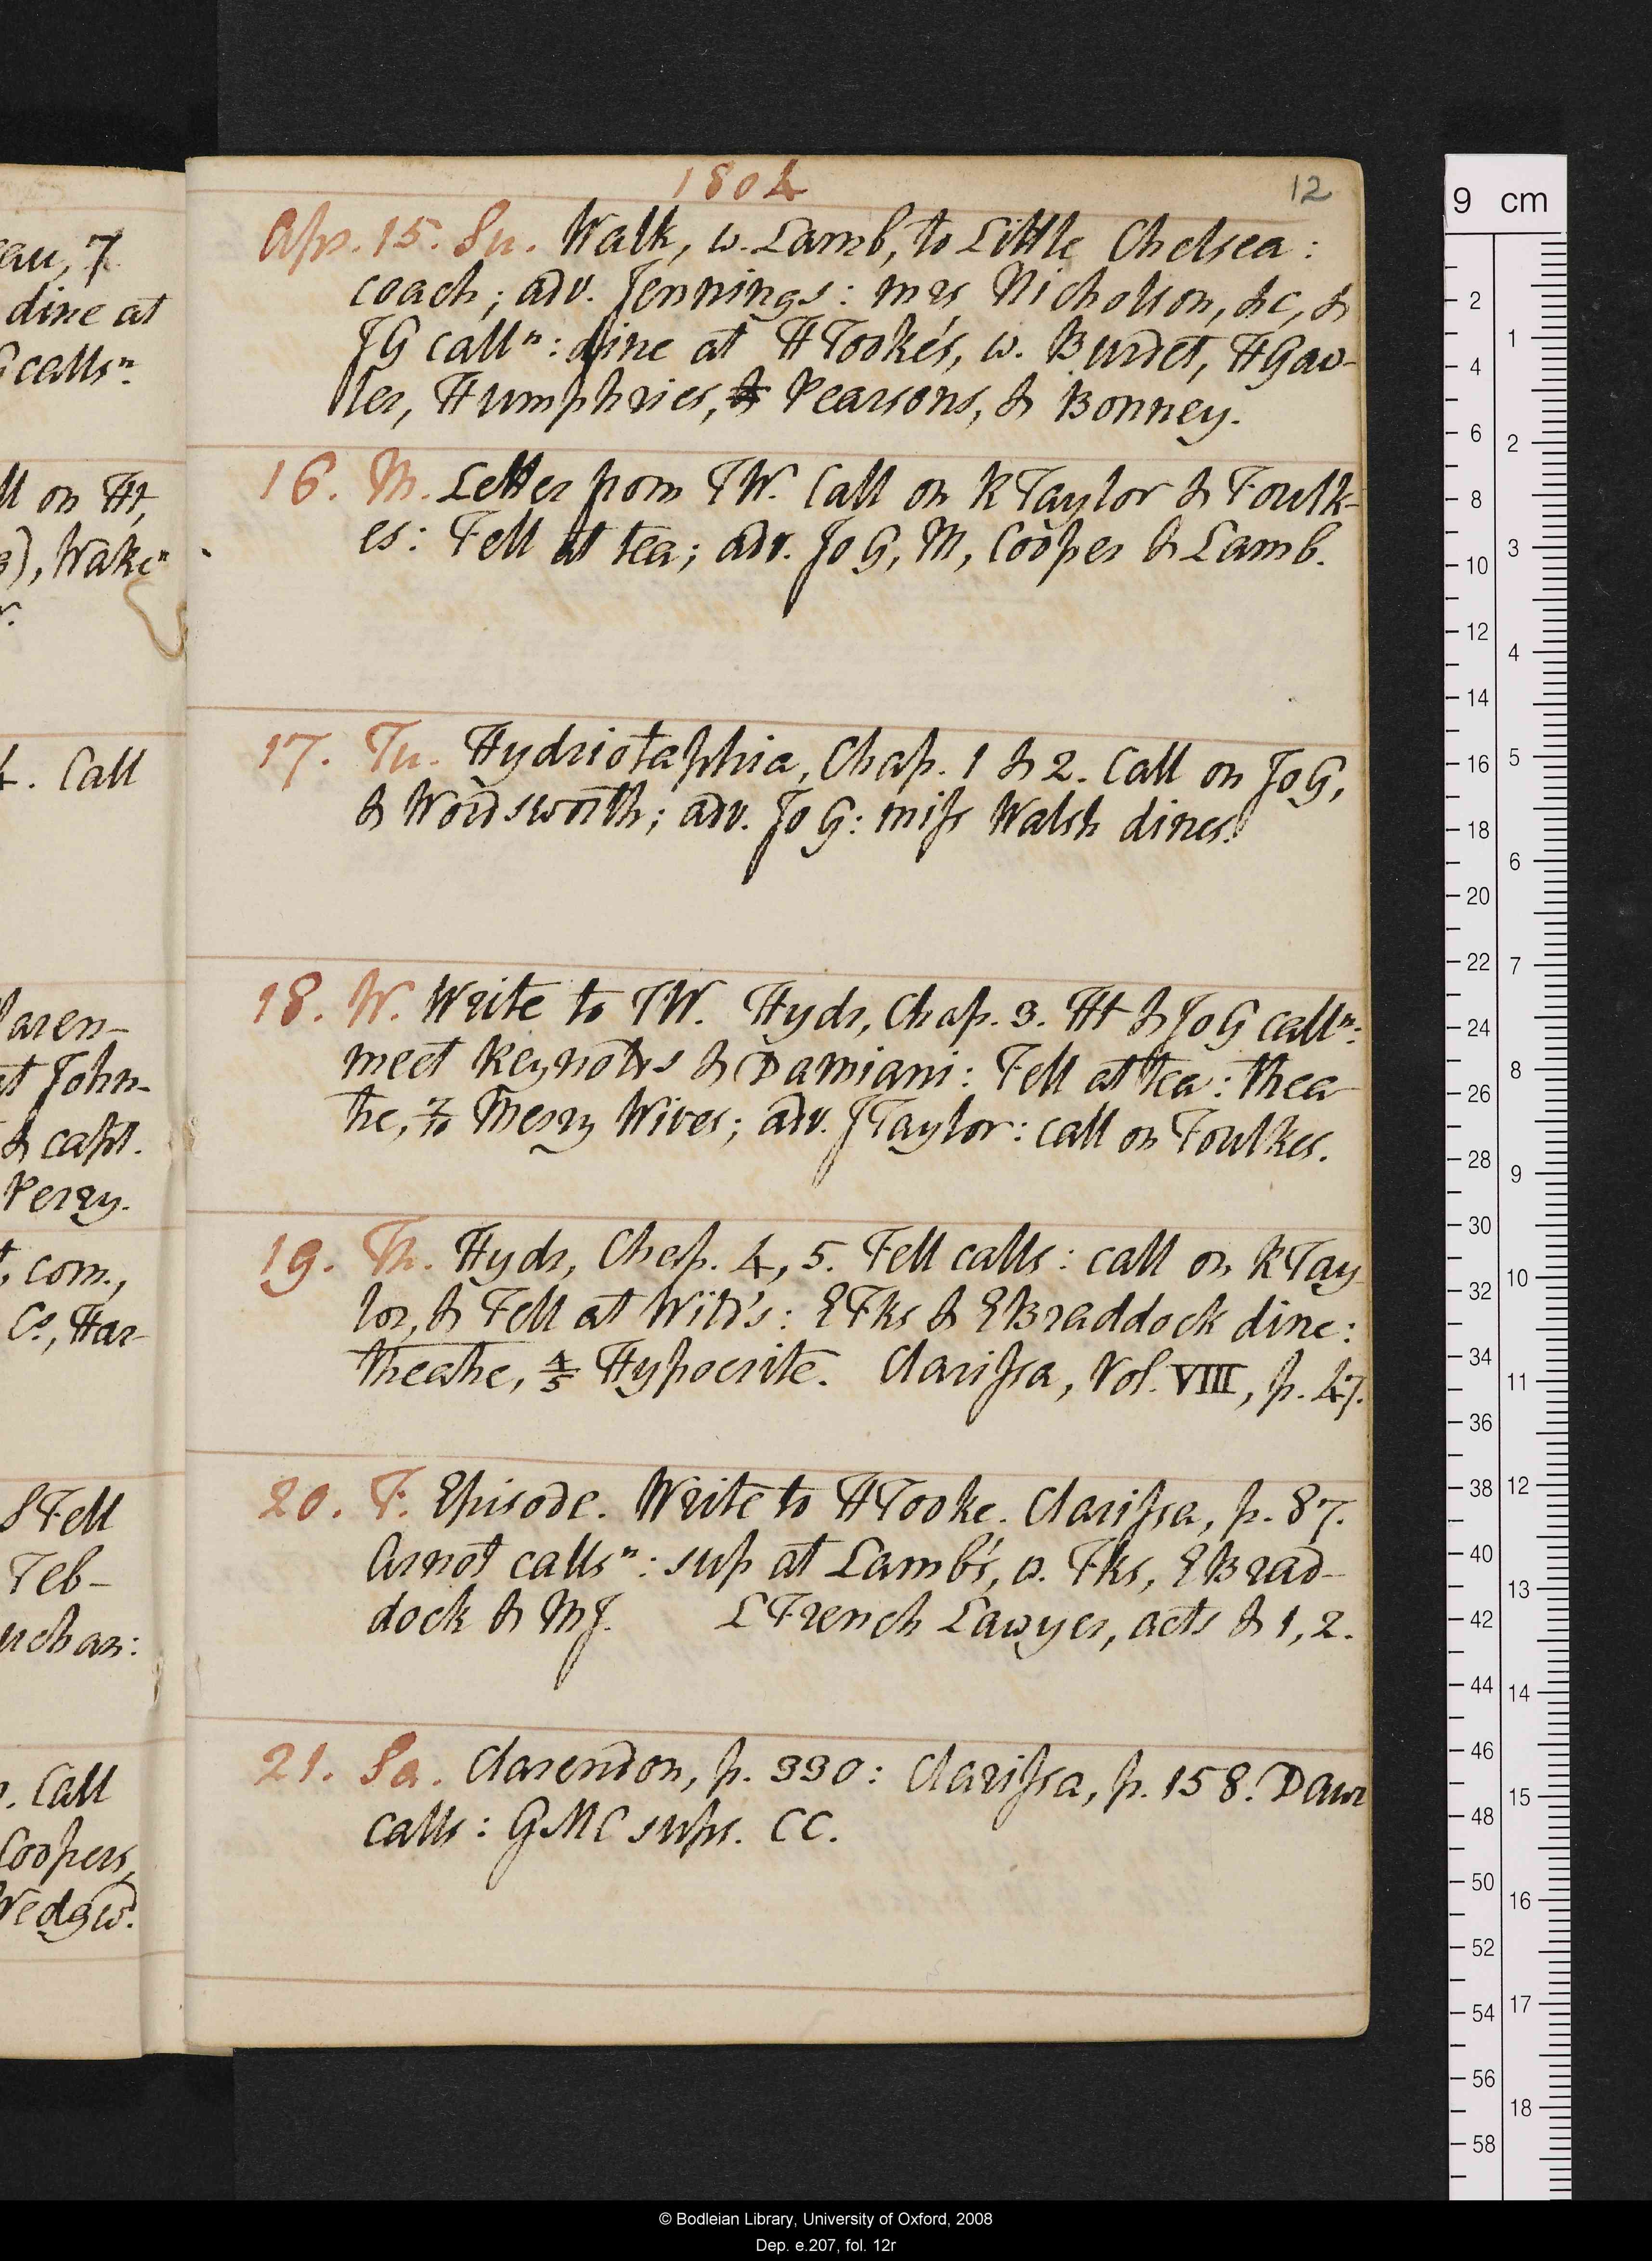 1804
12
Apr. 15. Su. Walk, w. Lamb, to Little Chelsea:
coach; adv. Jennings: mrs Nicholson, &c, &
JG calln: dine at HTooke's, w. Burdet, HGaw-
ler, Humphries, & Pearsons, & Bonney.
16. M. Letter from TW. Call on RTaylor & Foulk-
es: Fell at tea; adv. JoG, M, Cooper & Lamb.
17. Tu. Hydriotaphia, Chap. 1 & 2. Call on JoG,
& Wordsworth; adv. JoG: miss Walsh dines.
18. W. Write to TW. Hydr, Chap. 3. Ht & JoG calln:
meet Reynolds & Damiani: Fell at tea: thea
tre, Merry Wives; adv. JTaylor: call on Foulkes.
19. Th. Hydr, Chap. 4, 5. Fell calls: call on RTay
lor, & Fell at Wild's: EFks & EBraddock dine:
theatre, 4/5 Hypocrite. Clarissa, Vol. VIII, p. 47.
20. F. Episode. Write to HTooke. Clarissa, p. 87.
Arnot callsn: sup at Lamb's, w. Fks, EBrad-
dock & MJ. LFrench Lawyer, acts & 1, 2.
21. Sa. Clarendon, p. 330: Clarissa, p. 158. Dawe
calls: GMC sups. CC.
au, 7
dine at
G callsn.
ll on Ht,
3), Waken
r.
4. Call
Maren-
at John-
& capt.
Perry.
t, com.,
Co, Har-
SFell
Teb-
uchar:
Call
Coopers,
Wedgwd.
9 cm
2
4
6
8
10
12
14
16
18
20
22
24
26
28
30
32
34
36
38
40
42
44
46
48
50
52
54
56
58
1
2
3
4
5
6
7
8
9
10
11
12
13
14
15
16
17
18
© Bodleian Library, University of Oxford, 2008
Dep. e.207, fol. 12r